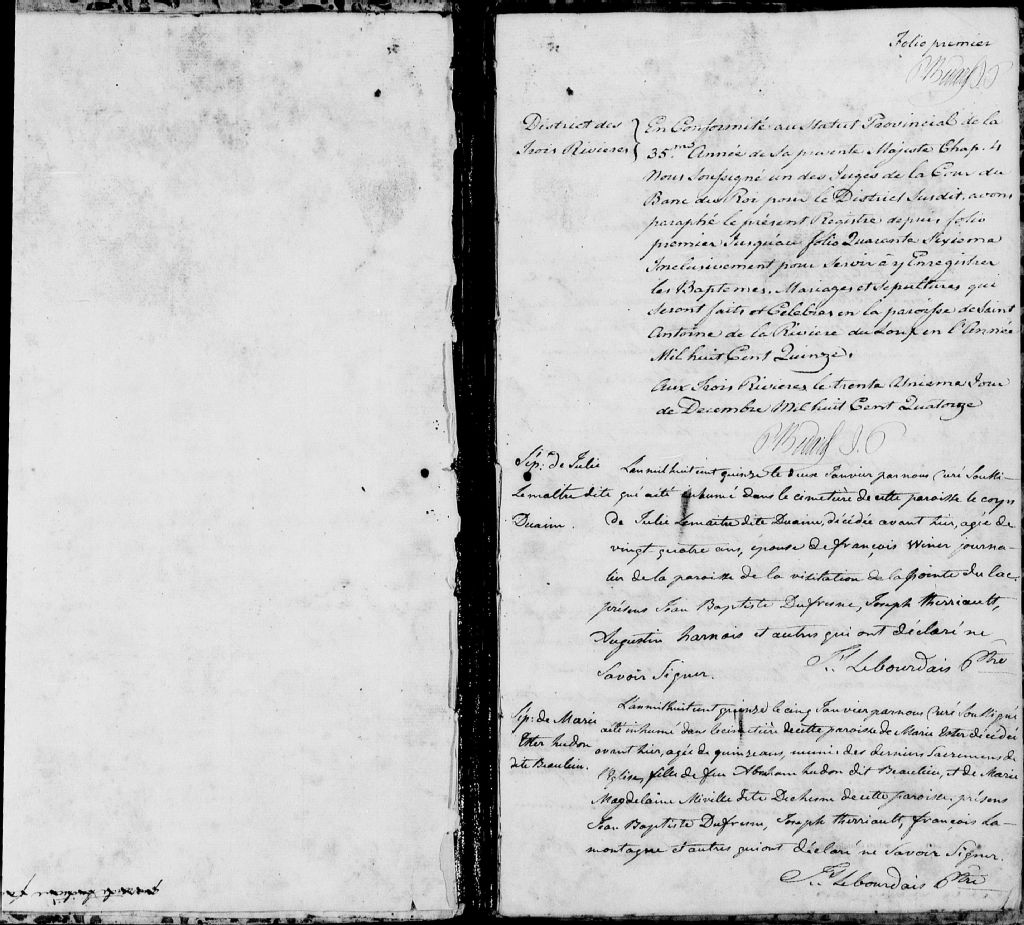 Folio premier
District des
Trois Rivieres
En Conformité au Statut Provincial de la
35.me Année de Sa presente Majeste Chap. 4
Nous Soussigné un des Juges de la Cour du
Banc du Roi pour le District Susdit, avons
paraphé le présent Registre depuis folio
premier Jusqu'au folio Quarante Sixieme
Inclusivement pour Servir à y Enregistrer
les Baptemes, Mariages et Sepultures qui
Seront faits et Celebres en la paroisse de Saint
Antoine de la Riviere du Loup en l'Année
Mil huit Cent Quinze.
Aux Trois Rivieres le trente Unieme Jour
de Decembre Mil huit Cent Quatorze
Sép: de Julie
Lemaître dite
Duaim.
L'an mil huit cent quinze le deux Janvier par nous Curé Soussi-
gné a été inhumé dans le cimetière de cette paroisse le corps
de Julie Lemaitre dite Duaim, décédée avant hier, agée de
vingt quatre ans, épouse de françois Winer journa-
lier de la paroisse de la visitation de la pointe du lac,
présens Jean Baptiste Dufresne, Joseph therriault,
Augustin harnois et autres qui ont déclaré ne
Savoir Signer.
Lebourdais Ptre
Sép: de Marie
Ester hudon
dite Beaulieu.
L'an mil huit cent quinze le cinq Janvier par nous Curé Soussigné
a été inhumé dans le cimetière de cette paroisse de Marie Ester décédée
avant hier, agée de quinze ans, munie des derniers Sacremens de
l'Eglise, fille de feu Abraham hudon dit Beaulieu, et de Marie
Magdelaine Miville dite Dechesne de cette paroisse, présens
Jean Baptiste Dufresne, Joseph therriault, françois La-
montagne et autres qui ont déclaré ne Savoir Signer.
Lebourdais Ptre